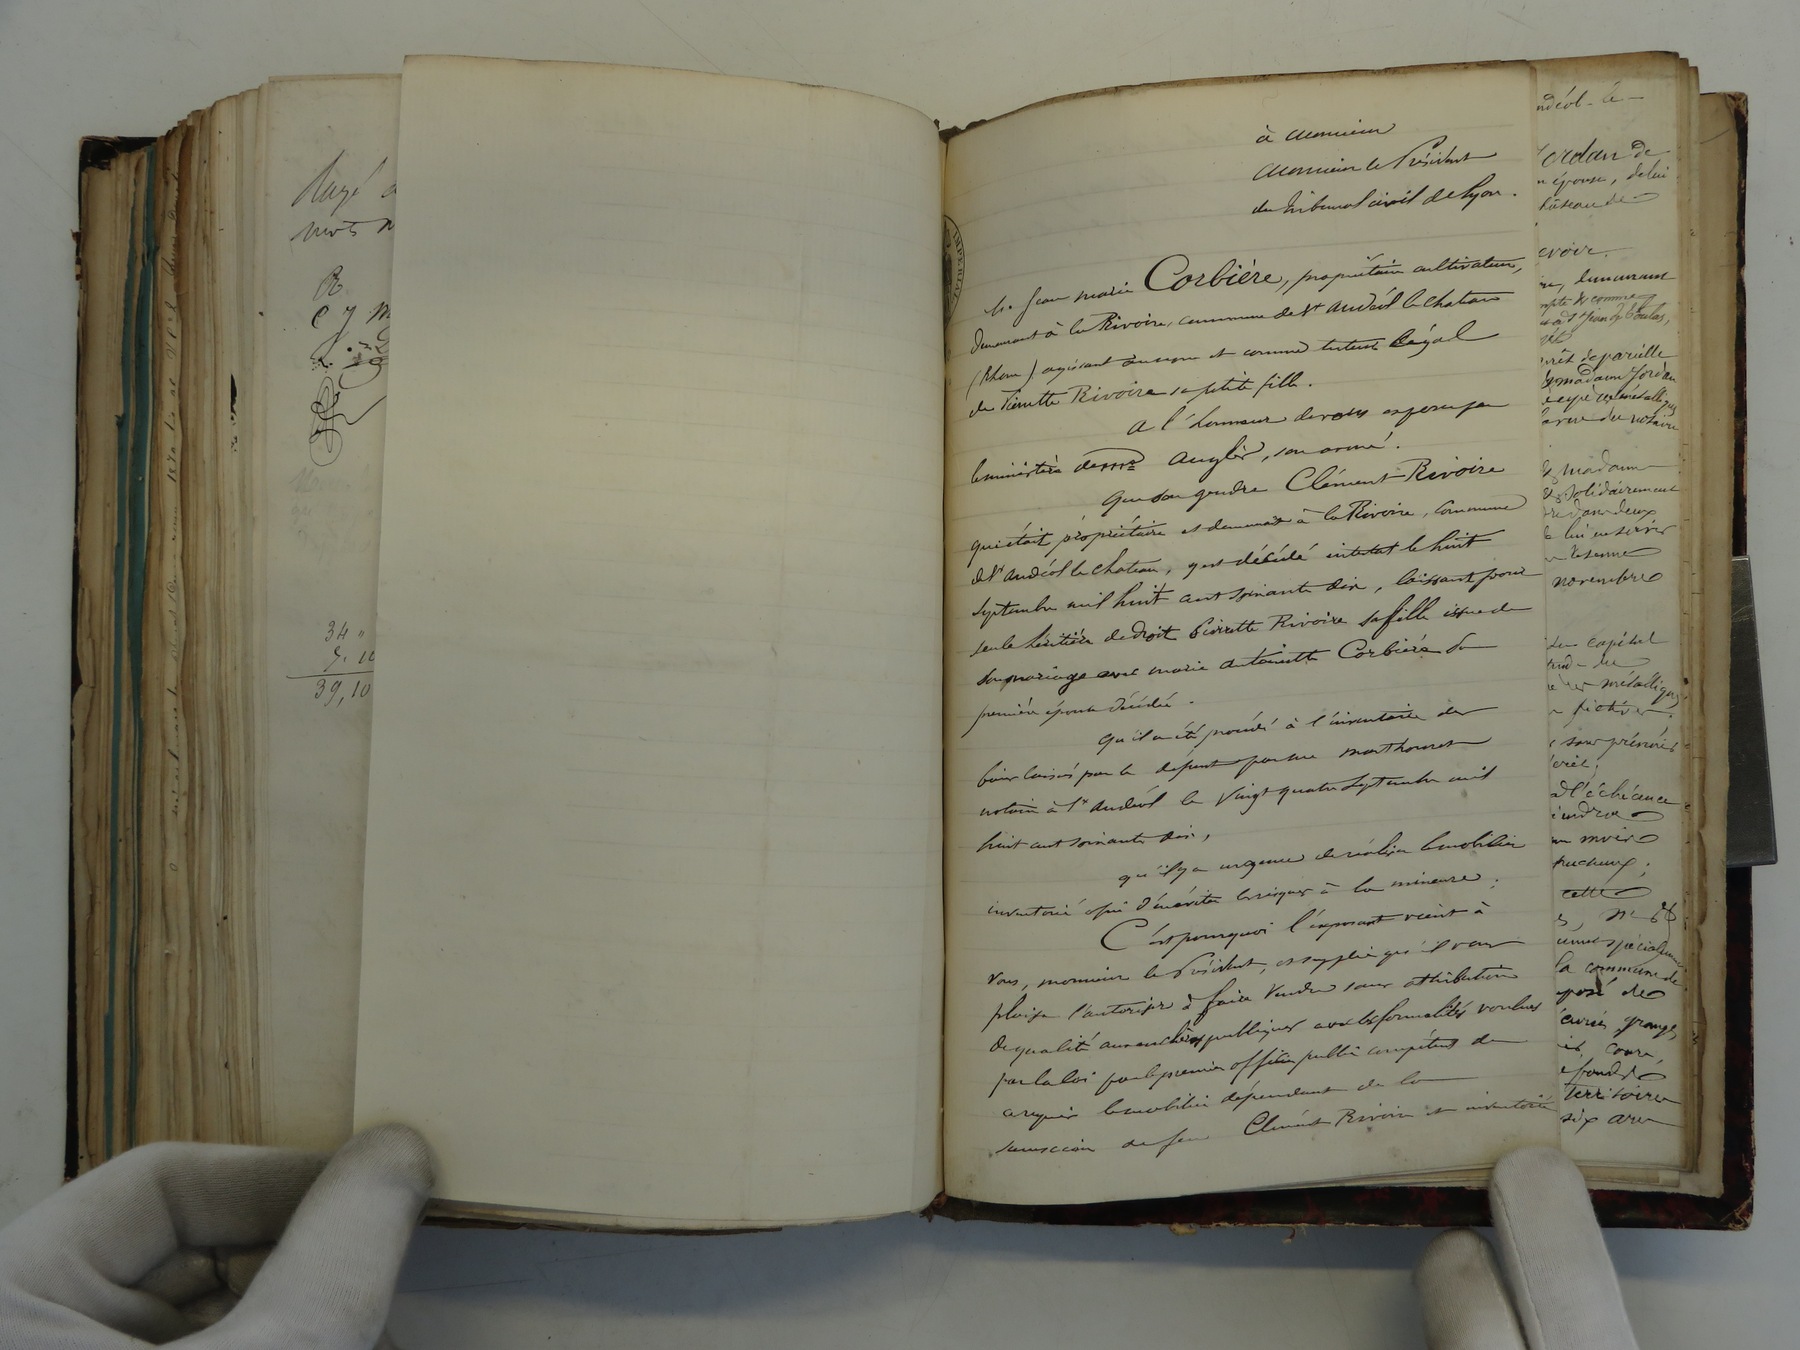 Rayé
mots
34 "
39,10
à Monsieur
Monsieur le Président
du tribunal civil de Lyon.
M. Jean Marie Corbière, propriétaire cultivateur,
demeurant à la Rivoire, commune de St Andéol le Chateau
(Rhône) agissant au nom et comme tuteur légal
de Pierrette Rivoire sa petite fille.
A l'honneur de vous exposer par
le ministère de Me Anglès, son avoué.
Que son gendre Clément Rivoire
qui était propriétaire et demeurait à la Rivoire, commune
de St Andéol le Chateau, y est décédé intestat le huit
Septembre mil huit cent soixante dix, laissant pour
seule héritière de droit Pierrette Rivoire sa fille issue de
son mariage avec Marie Antoinette Corbière sa
première épouse décédée.
Qu'il a été procédé à l'inventaire des
biens laissés par le défunt par Me Monthouret
notaire à St Andéol le vingt quatre Septembre mil
huit cent soixante dix,
qu'il y a urgence de réaliser le mobilier
inventorié afin d'en éviter les risques à la mineure;
C'est pourquoi l'exposant vient à
vous, Monsieur le Président, et supplie qu'il vous
plaise l'autoriser à faire vendre sans attribution
de qualité aux enchères publiques avec les formalités voulues
par la loi par le premier officier public compétent de
ce requis le mobilier dépendant de la
succession de feu Clément Rivoire et inventorié
ndéol-le-
Jordan de
n épouse, de lui
hâteau de
evoir.
demeurant
comme
st Jean de Toulas,
prêt de pareille
madame Jordan
vue du notaire
madame
solidairement
dans deux
novembre
capital
métallique
fictives
l'échéance
mois
cette
spécialement
la commune de
posé de
écurie, grange,
cour,
fonds
territoire
six ares